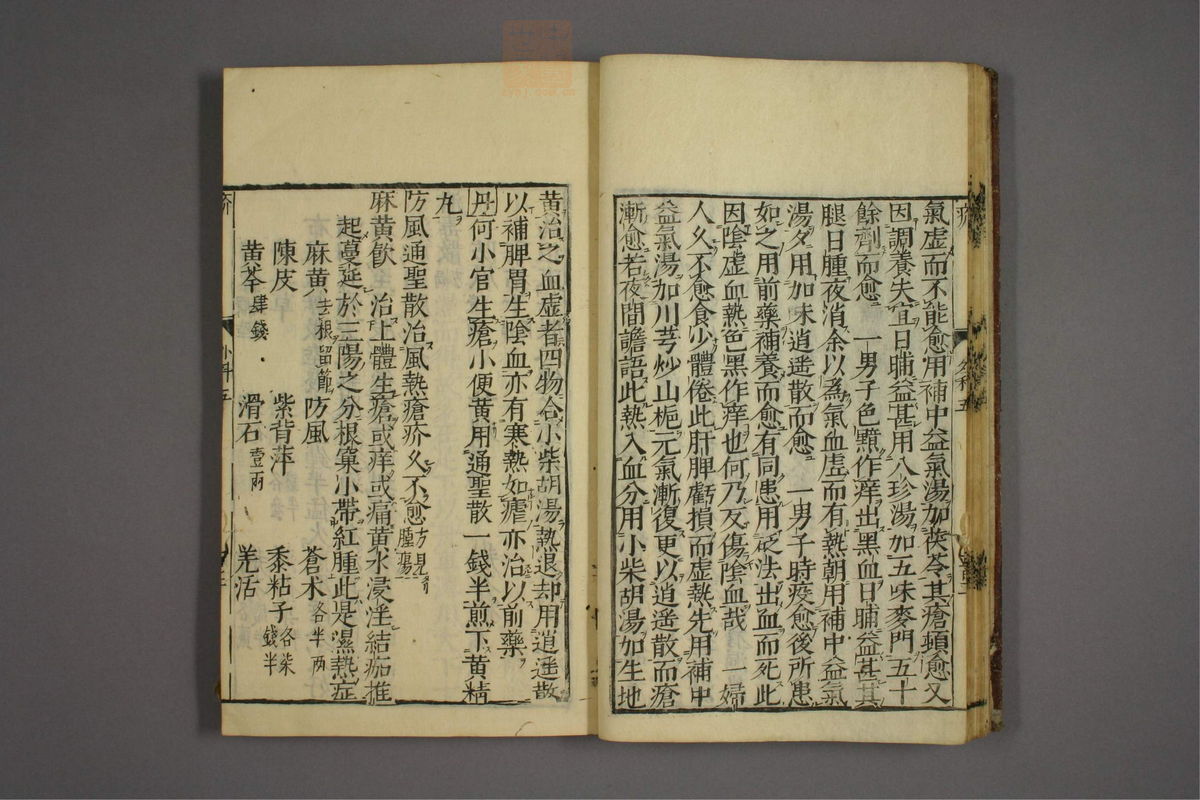 氣虛而不能愈用補中益氣湯加茯苓其瘡頓愈又
因調養失宜日晡益甚用八珍湯加五味麥門五十
餘劑而愈 一男子色黯作痒出黑血日晡益甚其
腿日腫夜消余以為氣血虛而有熱朝用補中益氣
湯夕用加味逍遥散而愈 一男子時疫愈後所患
如之用前藥補養而愈有同患用砭法出血而死此
因陰虛血熱色黑作痒也何乃反傷陰血哉 一婦
人久不愈食少體倦此肝脾虧損而虛熱先用補中
益氣湯加川芎炒山梔元氣漸復更以逍遥散而瘡
漸愈若夜間譫語此熱入血分用小柴胡湯加生地
黃治之血虛者四物合小柴胡湯熱退却用逍遥散
以補脾胃生陰血亦有寒熱如瘧亦治以前藥
丹何小官生瘡小便黃用通聖散一錢半煎下黃精
丸
防風通聖散治風熱瘡疥久不愈方見
腫瘍
麻黃飲 治上體生瘡或痒或痛黃水浸淫結痂堆
起蔓延於三陽之分根窠小帶紅腫此是濕熱症
麻黃去根留節 防風 蒼术各半兩
陳皮 紫背萍 黍粘子各柒錢半
黃芩肆錢 滑石壹兩 羌活